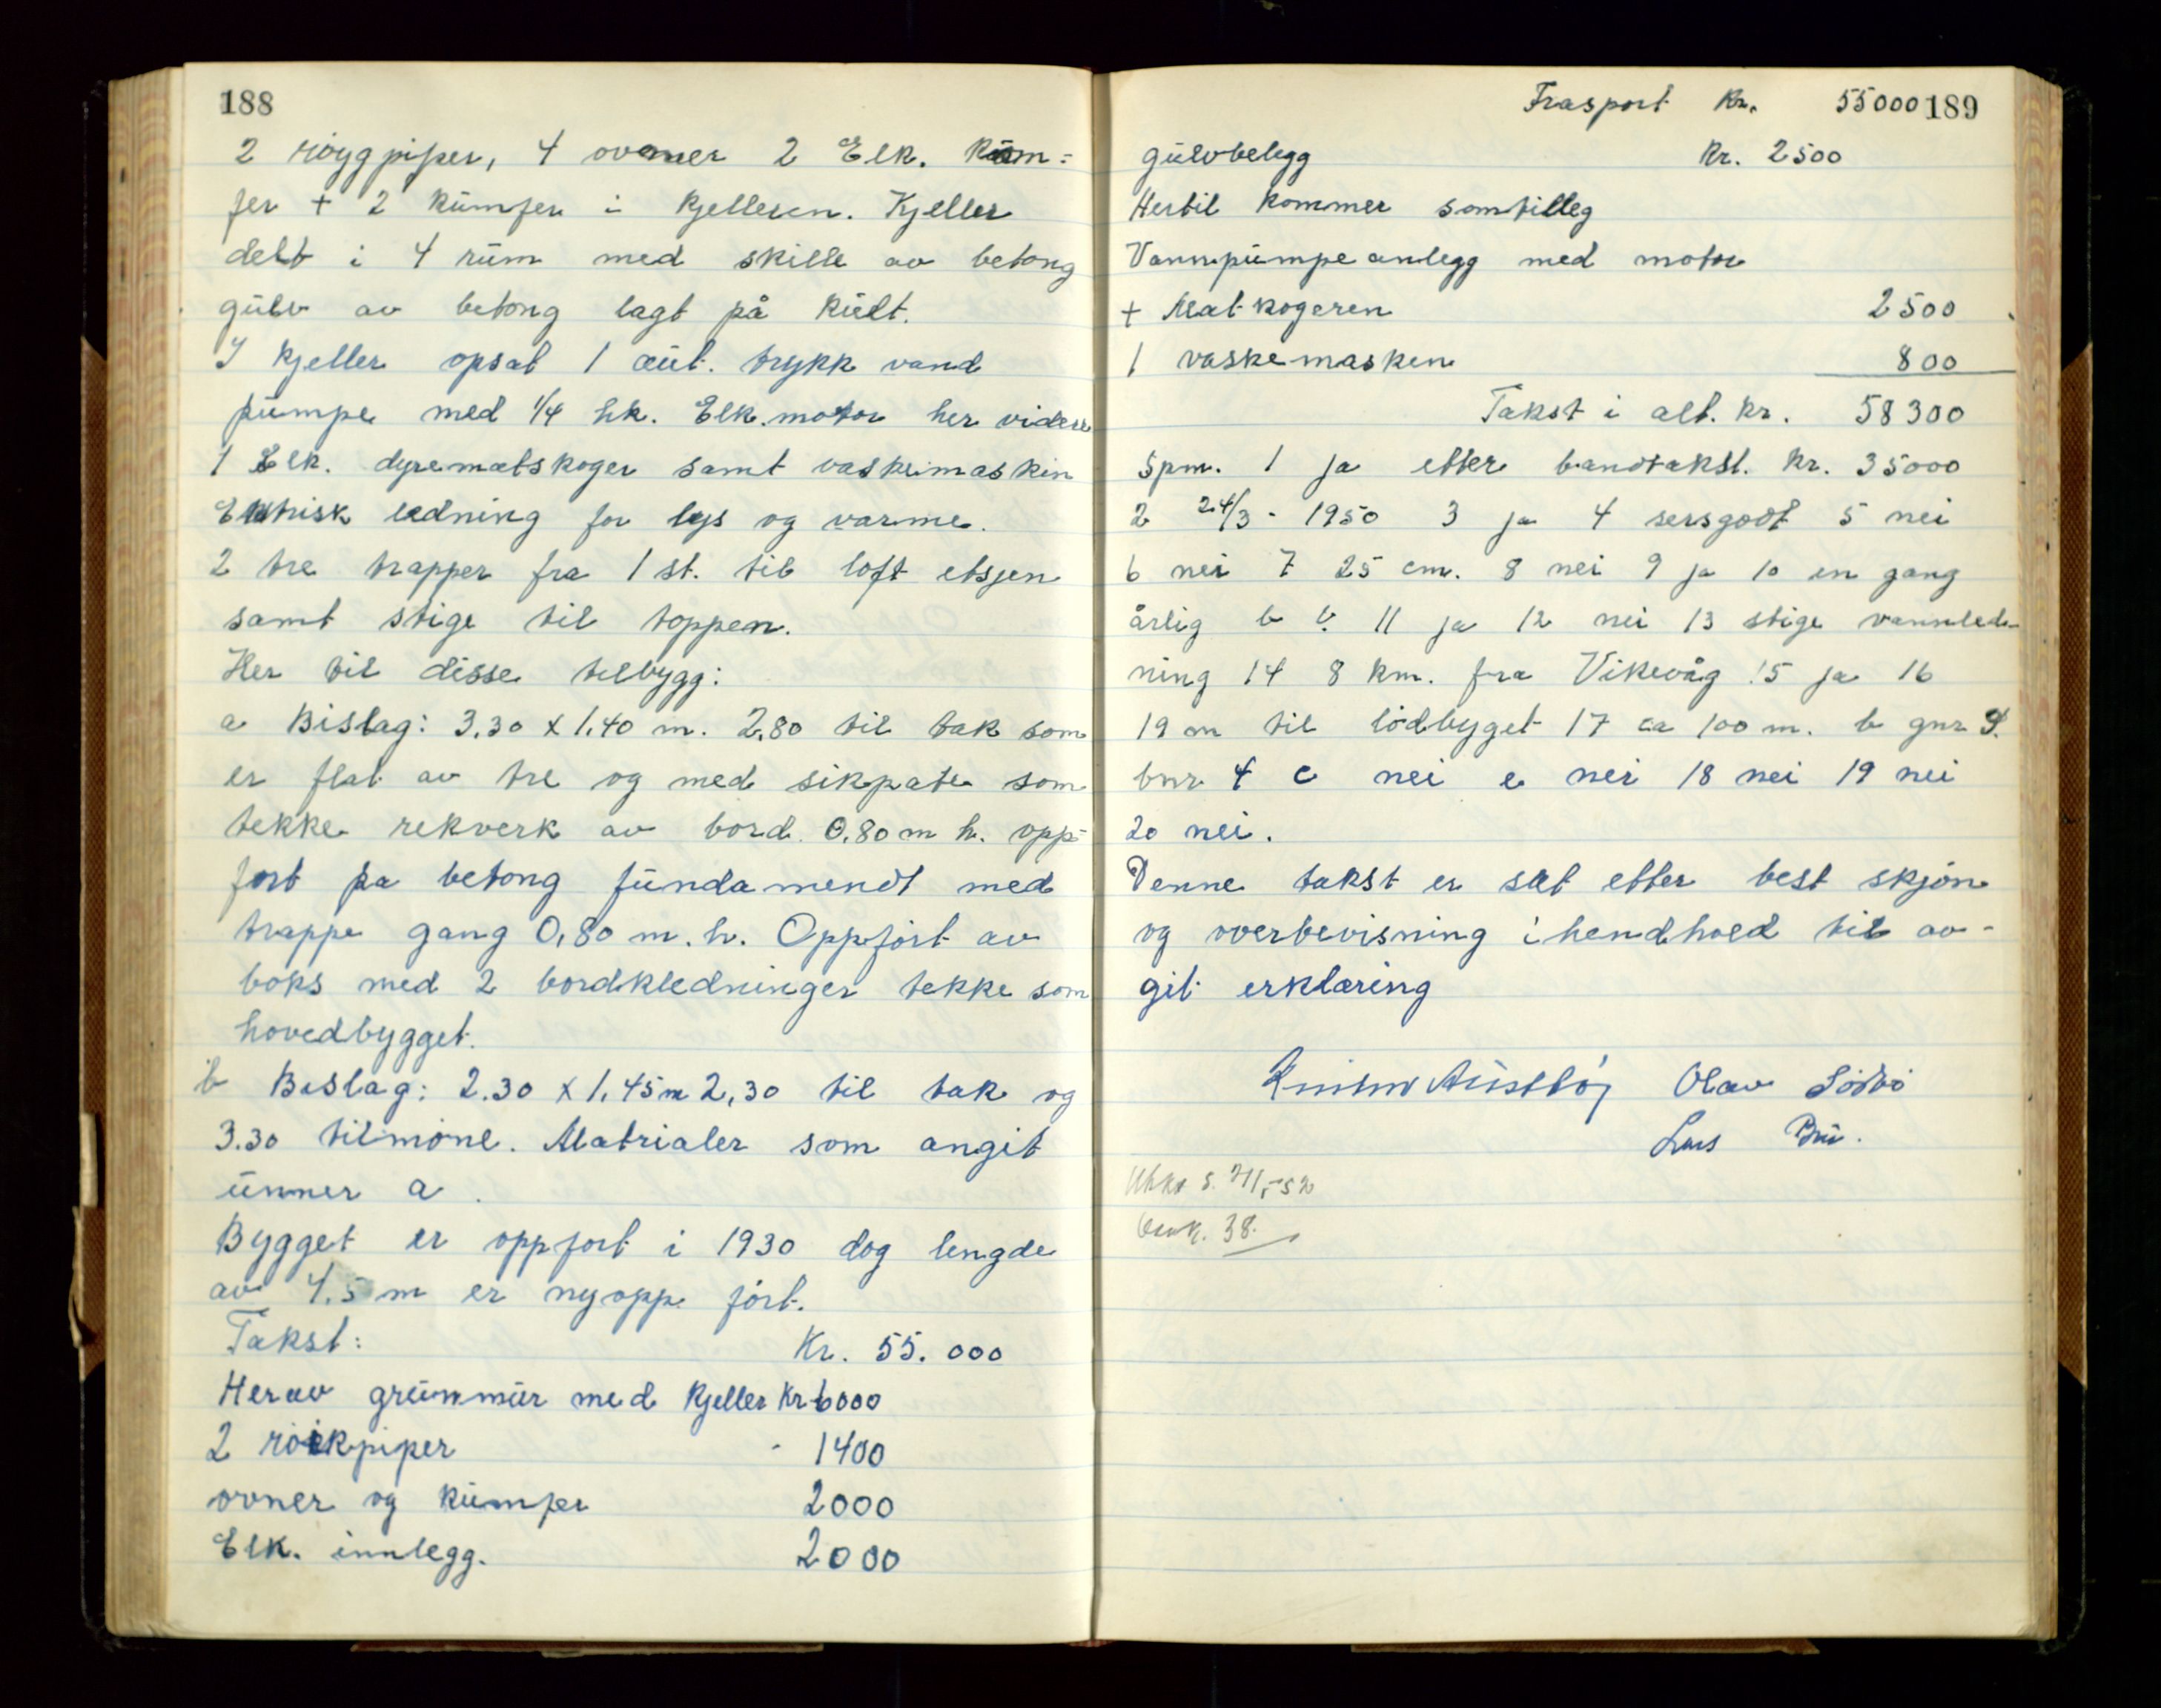 188
2 röygpiper, 4 ovner 2 Elk. kom-
fer + 2 kumfer i kjelleren. Kjeller
delt i 4 rum med skille av betong
gulv av betong lagt på kult.
I kjeller opsat 1 aut. trykk vand
pumpe med 1/4 hk. Elk. motor her videre
1 Elk. dyrematskoger samt vaskemaskin
Elktrisk ledning for lys og varme.
2 tre trapper fra 1 st. til loft etsjen
samt stige til toppen.
Her til disse tilbygg:
a Bislag: 3.30 x 1.40 m. 2.80 til tak som
er flat av tre og med sikpate som
tekke rekverk av bord. 0.80 m h. opp-
ført på betong fundamendt med
trappe gang 0,80 m. h. Oppført av
boks med 2 bordkledninger tekke som
hovedbygget.
b Bislag: 2.30 x 1,45 m 2,30 til tak og
3.30 til möne. Matrialer som angit
unner a.
Bygget er oppfört i 1930 dog lengde
av 4.5 m er nyopp fört.
Takst: Kr. 55.000
Herav grunmur med kjeller Kr 6000
2 röikpiper - 1400
ovner og kumfer 2000
Elk. innlegg. 2000
Trasport Kr. 55000
189
gulvbelegg Kr. 2500
Hertil kommer somtilleg
Vannpumpeanlegg med motor
+ Matkogeren 2500
1 vaskemasken 800
Takst i alt. kr. 58300
Spm. 1 ja etter bandtakst. kr. 35000
2 24/3 - 1950 3 ja 4 sersgodt 5 nei
6 nei 7 25 cm. 8 nei 9 ja 10 en gang
årlig b 11 ja 12 nei 13 stige vannled-
ning 14 8 km. fra Vikevåg 15 ja 16
19 m til lödbyget 17 ca 100 m. b gnr 9.
bnr 4 c nei e nei 18 nei 19 nei
20 nei.
Denne takst er sat etter best skjön
og overbevisning i hendhold til av-
git erklæring
Austbö Olav Södbö
Lars Bru.
38.